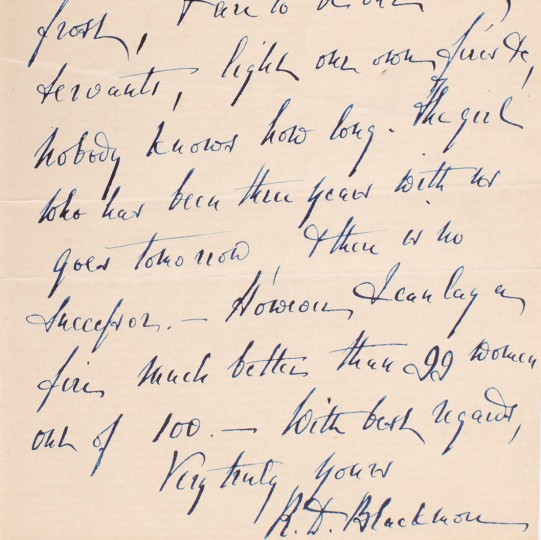 frost,
servants, light our own fires &c,
nobody knows how long. The girl
who has been three years with us
goes tomorrow & there is no
successor. — However, I can lay a
fire much better than 99 women
out of 100. — With best regards,
Very truly yours
R. D. Blackmore